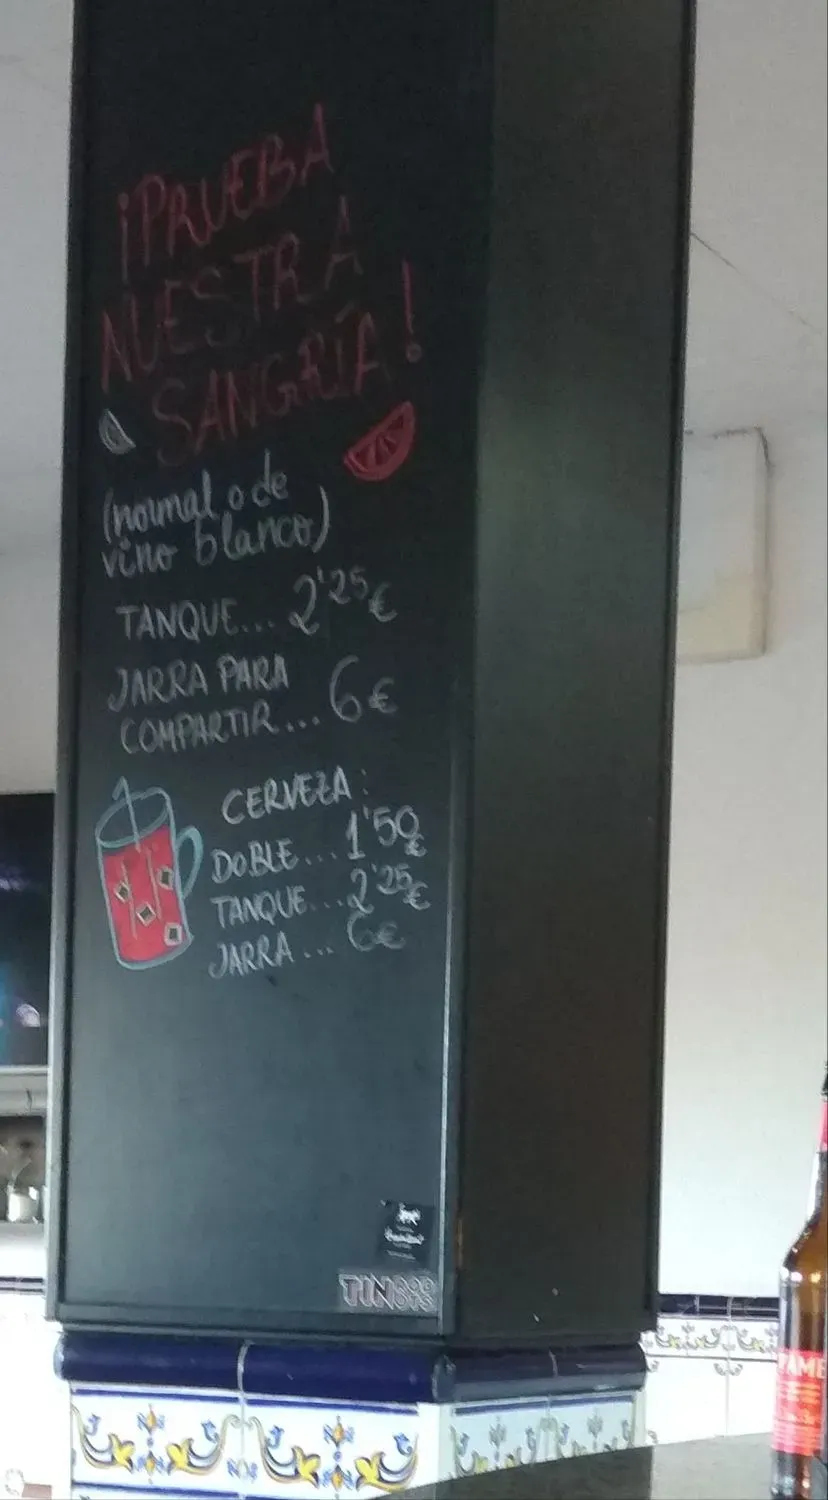 ¡PRUEBA
NUESTRA
SANGRÍA!
(normal o de
vino blanco)
TANQUE... 2'25€
JARRA PARA
COMPARTIR... 6€
CERVEZA:
DOBLE... 1'50€
TANQUE... 2'25€
JARRA... 6€
TIN